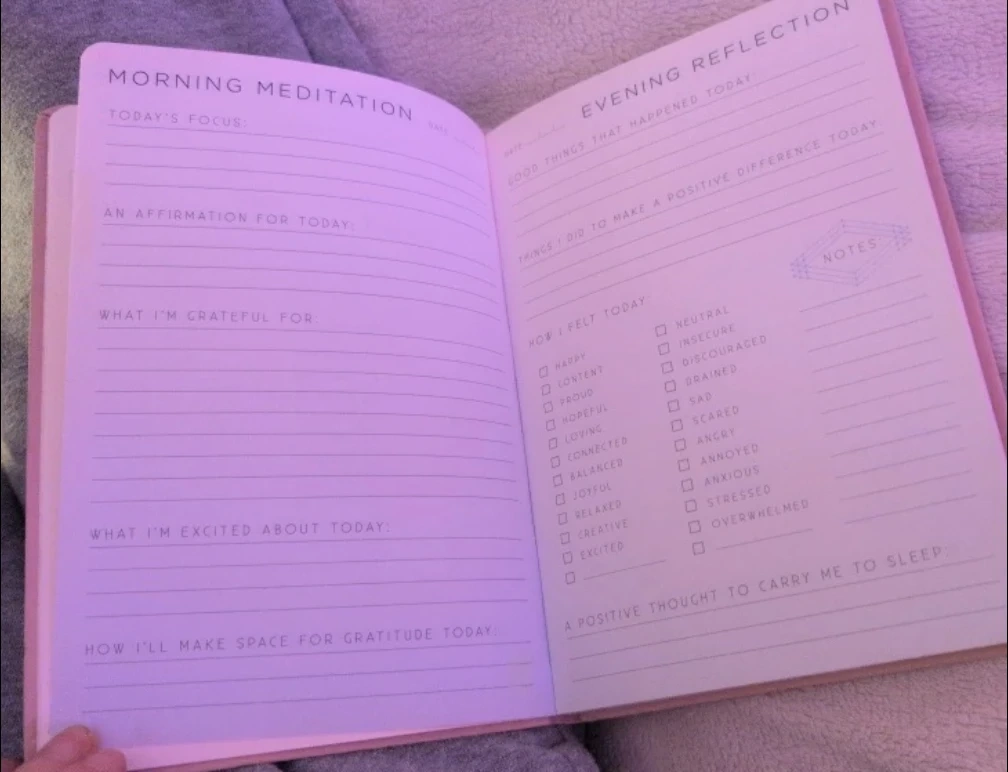 MORNING MEDITATION
DATE
TODAY'S FOCUS:
AN AFFIRMATION FOR TODAY:
WHAT I'M GRATEFUL FOR:
WHAT I'M EXCITED ABOUT TODAY:
HOW I'LL MAKE SPACE FOR GRATITUDE TODAY:
EVENING REFLECTION
DATE
GOOD THINGS THAT HAPPENED TODAY:
THINGS I DID TO MAKE A POSITIVE DIFFERENCE TODAY:
HOW I FELT TODAY:
HAPPY
CONTENT
PROUD
HOPEFUL
LOVING
CONNECTED
BALANCED
JOYFUL
RELAXED
CREATIVE
EXCITED
NEUTRAL
INSECURE
DISCOURAGED
DRAINED
SAD
SCARED
ANGRY
ANNOYED
ANXIOUS
STRESSED
OVERWHELMED
NOTES
A POSITIVE THOUGHT TO CARRY ME TO SLEEP: